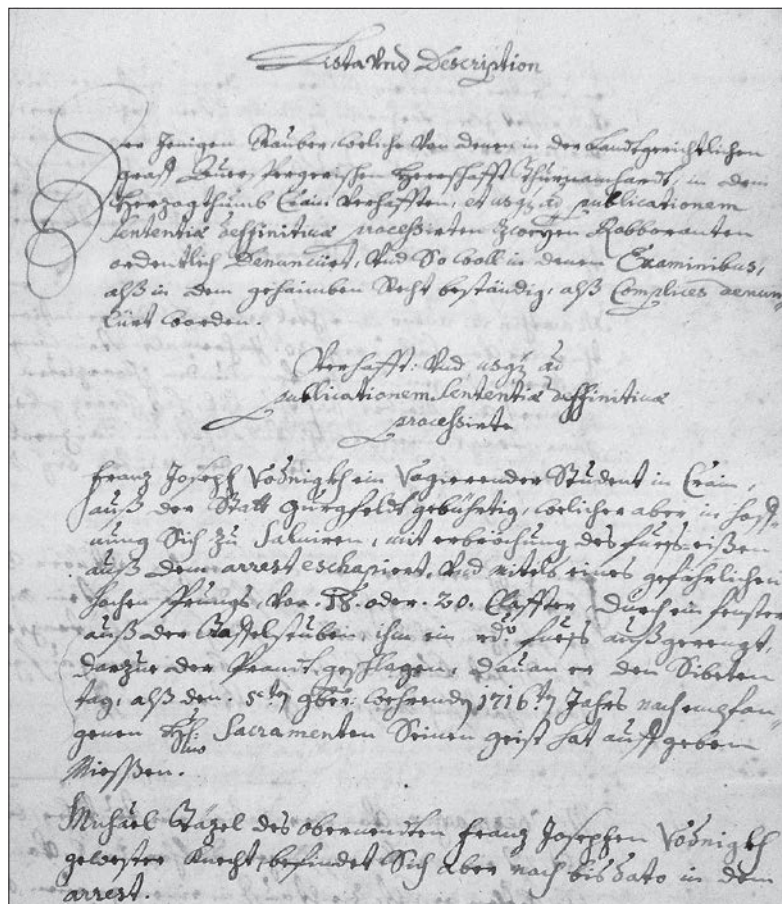 Lista Und Description
Der Jenigen Rauber, welche Von denen in der Landtgerichtlichen
graff Auerspergerischen Herrschafft Thurnamhardt, in dem
Herzogthumb Crain Verhafften, et usq ad publicationem
sententiæ deffinitivæ processirten zweyen Robboranten
ordentlich Denuncÿrt, Und So woll in denen Examinibus,
alß in dem gehaimben Recht beständig, alß Complices denun,
cÿrt worden.
Verhafft: Und usq ad
publicationem sententiæ deffinitivæ
processirte
Franz Joseph Vodnigkh ein Vagierender Student in Crain,
auß der Statt Gurgfeldt gebührtig, welicher aber in hoff,
nung Sich zu Salviren, mit erbröchung des fueß-eißen
auß dem arrest eschapiert, Und mitels eines gefährlichen
hochen sprungs, Von 18. oder 20. Claffter, durch ein fenster
auß der Taffelstuben, ihm ein rdo fueß außgerengt,
darzue der Prandt geschlagen, dauan er den Sibenten
tag, alß den 5ten 9ber: wehrendn 1716tn Jahrs nach empfan,
genen Hhl: Sacramenten Seinen geist hat auff geben
Miessen.
Michael Väzel des obernendten Franz Josephen Vodnigkh
gewester Knecht, befindet Sich aber noch bis dato in dem
arrest.